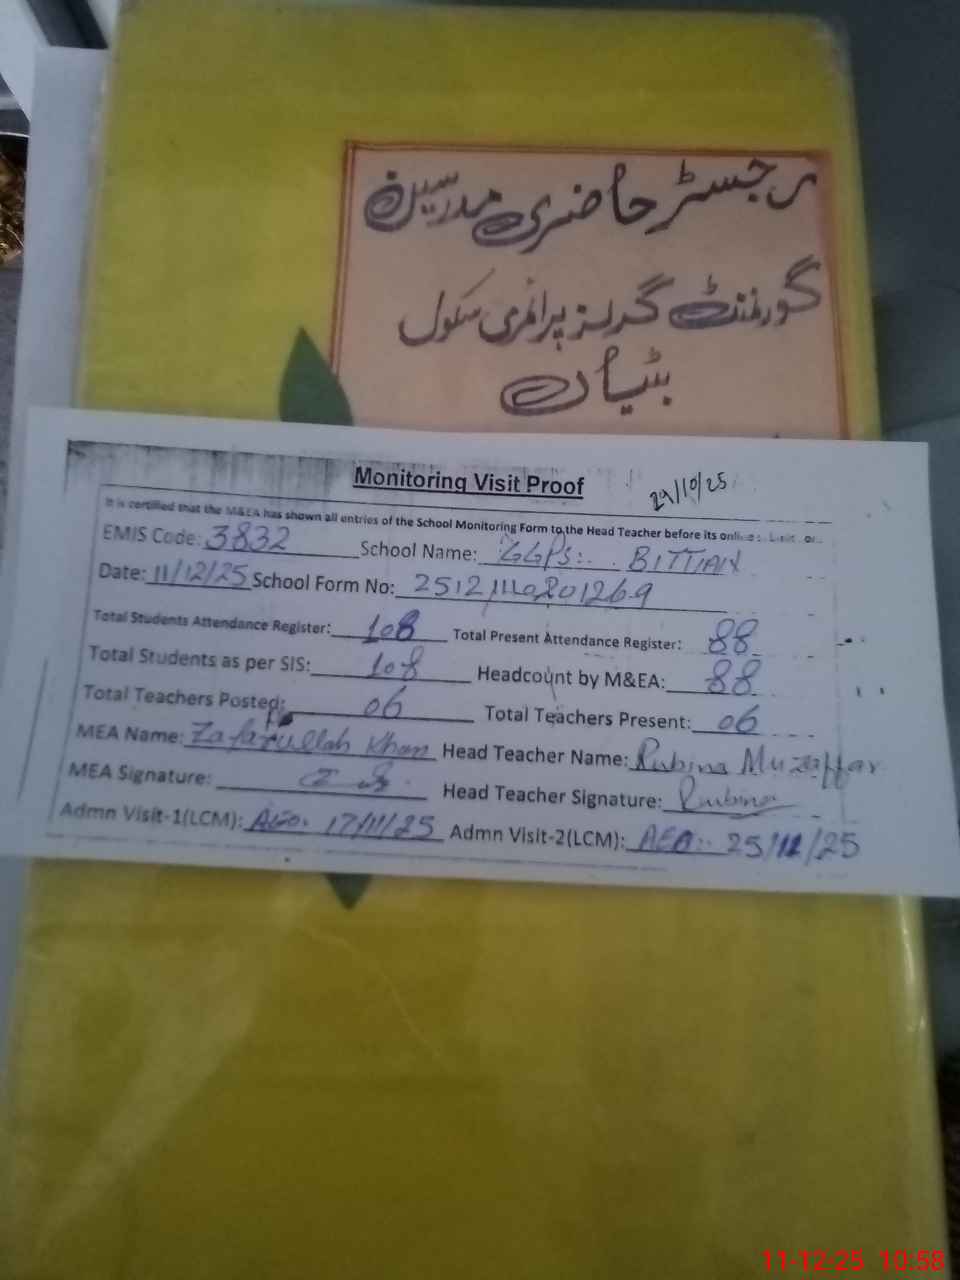 رجسٹر حاضری مدرسین
گورنمنٹ گرلز پرائمری سکول
بٹیاں
Monitoring Visit Proof 29/10/25
It is certified that the M&EA has shown all entries of the School Monitoring Form to the Head Teacher before its
EMIS Code: 3832 School Name: GGPS:. BITTIAN
Date: 11/12/25 School Form No:
Total Students Attendance Register: 108 Total Present Attendance Register: 88
Total Students as per SIS: 108 Headcount by M&EA: 88
Total Teachers Posted: 06 Total Teachers Present: 06
MEA Name: Zafarullah Khan Head Teacher Name: Rubina Muzaffar
MEA Signature: Head Teacher Signature: Rubina
Admn Visit-1(LCM): 17/11/25 Admn Visit-2(LCM): 25/11/25
11-12-25 10:58